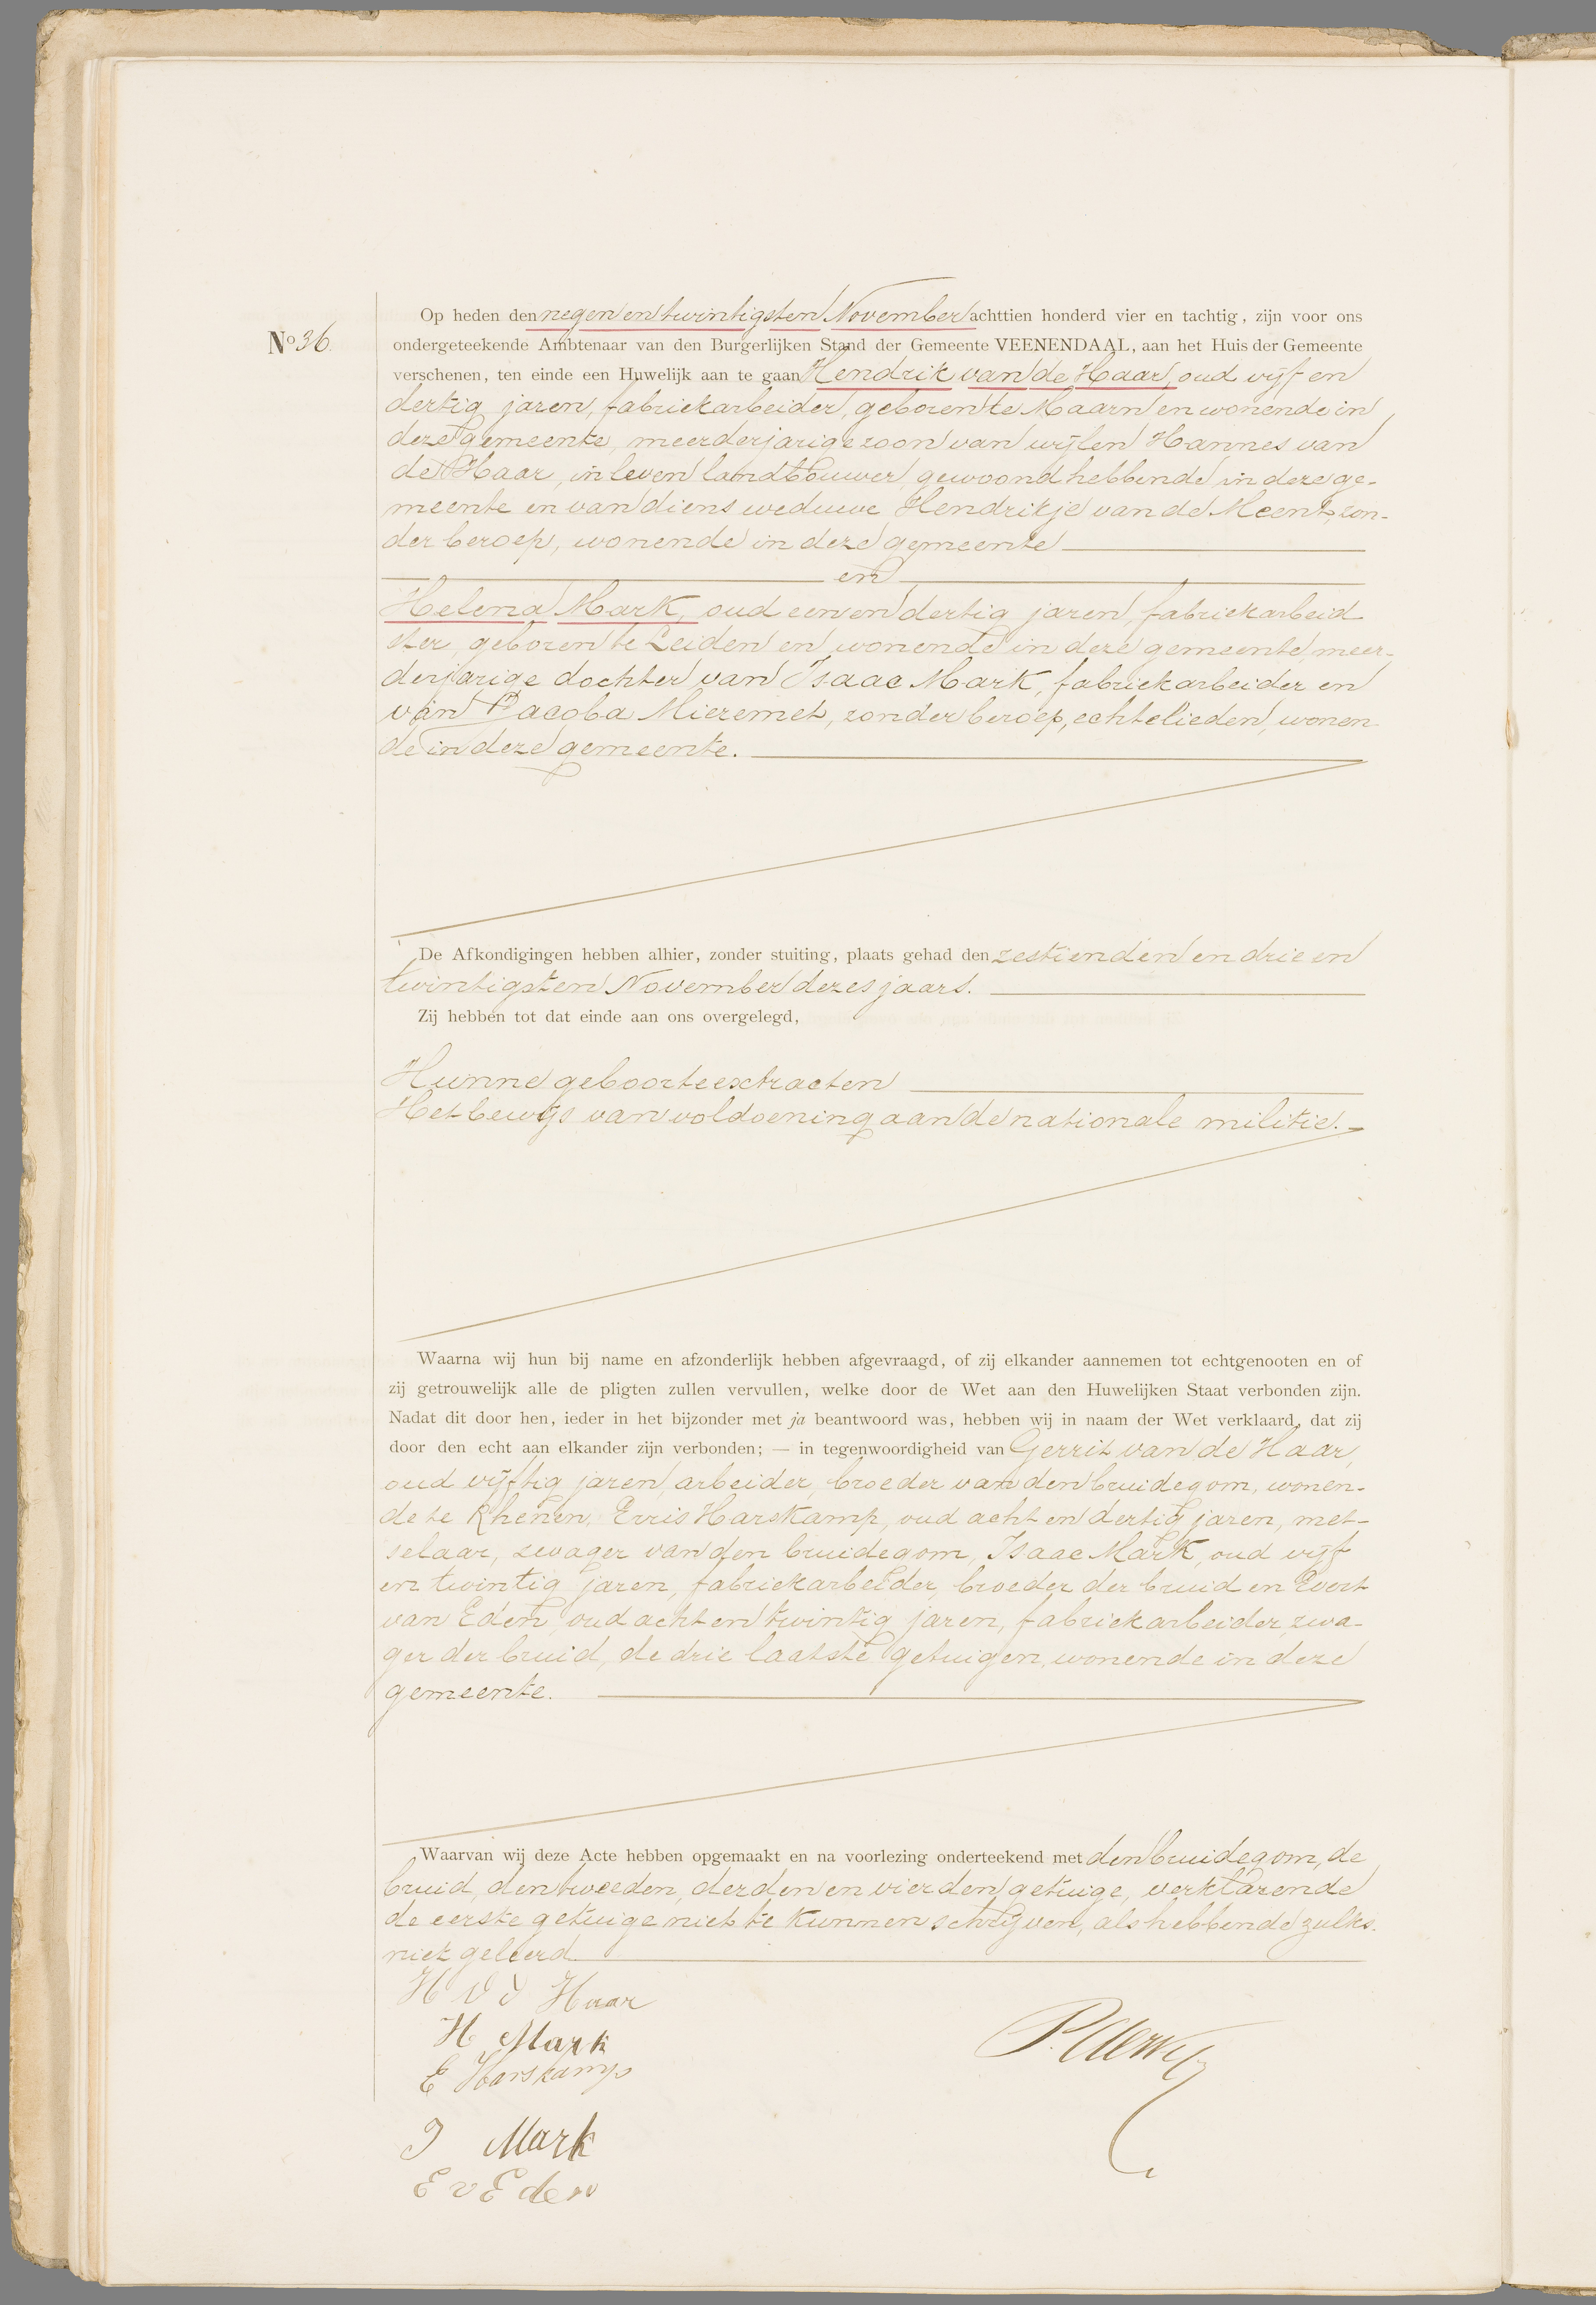 Op heden den negen en twintigsten November achttien honderd vier en tachtig, zijn voor ons
No 36.
ondergeteekende Ambtenaar van den Burgerlijken Stand der Gemeente VEENENDAAL, aan het Huis der Gemeente
verschenen, ten einde een Huwelijk aan te gaan Hendrik van de Haar, oud vijf en
dertig jaren, fabriekarbeider, geboren te Maarn en wonende in
deze gemeente, meerderjarige zoon van wijlen Hannes van
de Haar, in leven landbouwer, gewoond hebbende in deze ge-
meente en van diens weduwe Hendrikje van de Meent, zon-
der beroep, wonende in deze gemeente
en
Helena Mark, oud een en dertig jaren, fabriekarbeid
ster, geboren te Leiden en wonende in deze gemeente, meer-
derjarige dochter van Isaac Mark, fabriekarbeider en
van Jacoba Mieremet, zonder beroep, echtelieden, wonen
de in deze gemeente.
De Afkondigingen hebben alhier, zonder stuiting, plaats gehad den zestienden en drie en
twintigsten November dezes jaars.
Zij hebben tot dat einde aan ons overgelegd,
Hunne geboorteextracten
Het bewijs van voldoening aan de nationale militie.
Waarna wij hun bij name en afzonderlijk hebben afgevraagd, of zij elkander aannemen tot echtgenooten en of
zij getrouwelijk alle de pligten zullen vervullen, welke door de Wet aan den Huwelijken Staat verbonden zijn.
Nadat dit door hen, ieder in het bijzonder met ja beantwoord was, hebben wij in naam der Wet verklaard, dat zij
door den echt aan elkander zijn verbonden; — in tegenwoordigheid van Gerrit van de Haar,
oud vijftig jaren, arbeider, broeder van den bruidegom, wonen-
de te Rhenen, Erris Harskamp, oud acht en dertig jaren, met-
selaar, zwager van den bruidegom, Isaac Mark, oud vijf
en twintig jaren, fabriekarbeider, broeder der bruid en Evert
van Eden, oud acht en twintig jaren, fabriekarbeider, zwa-
ger der bruid, de drie laatste getuigen, wonende in deze
gemeente.
Waarvan wij deze Acte hebben opgemaakt en na voorlezing onderteekend met den bruidegom, de
bruid, den tweeden, derden en vierden getuige, verklarende
de eerste getuige niet te kunnen schrijven, als hebbende zulks
niet geleerd
H V D Haar
H Mark
E Harskamp
I Mark
E v Eden